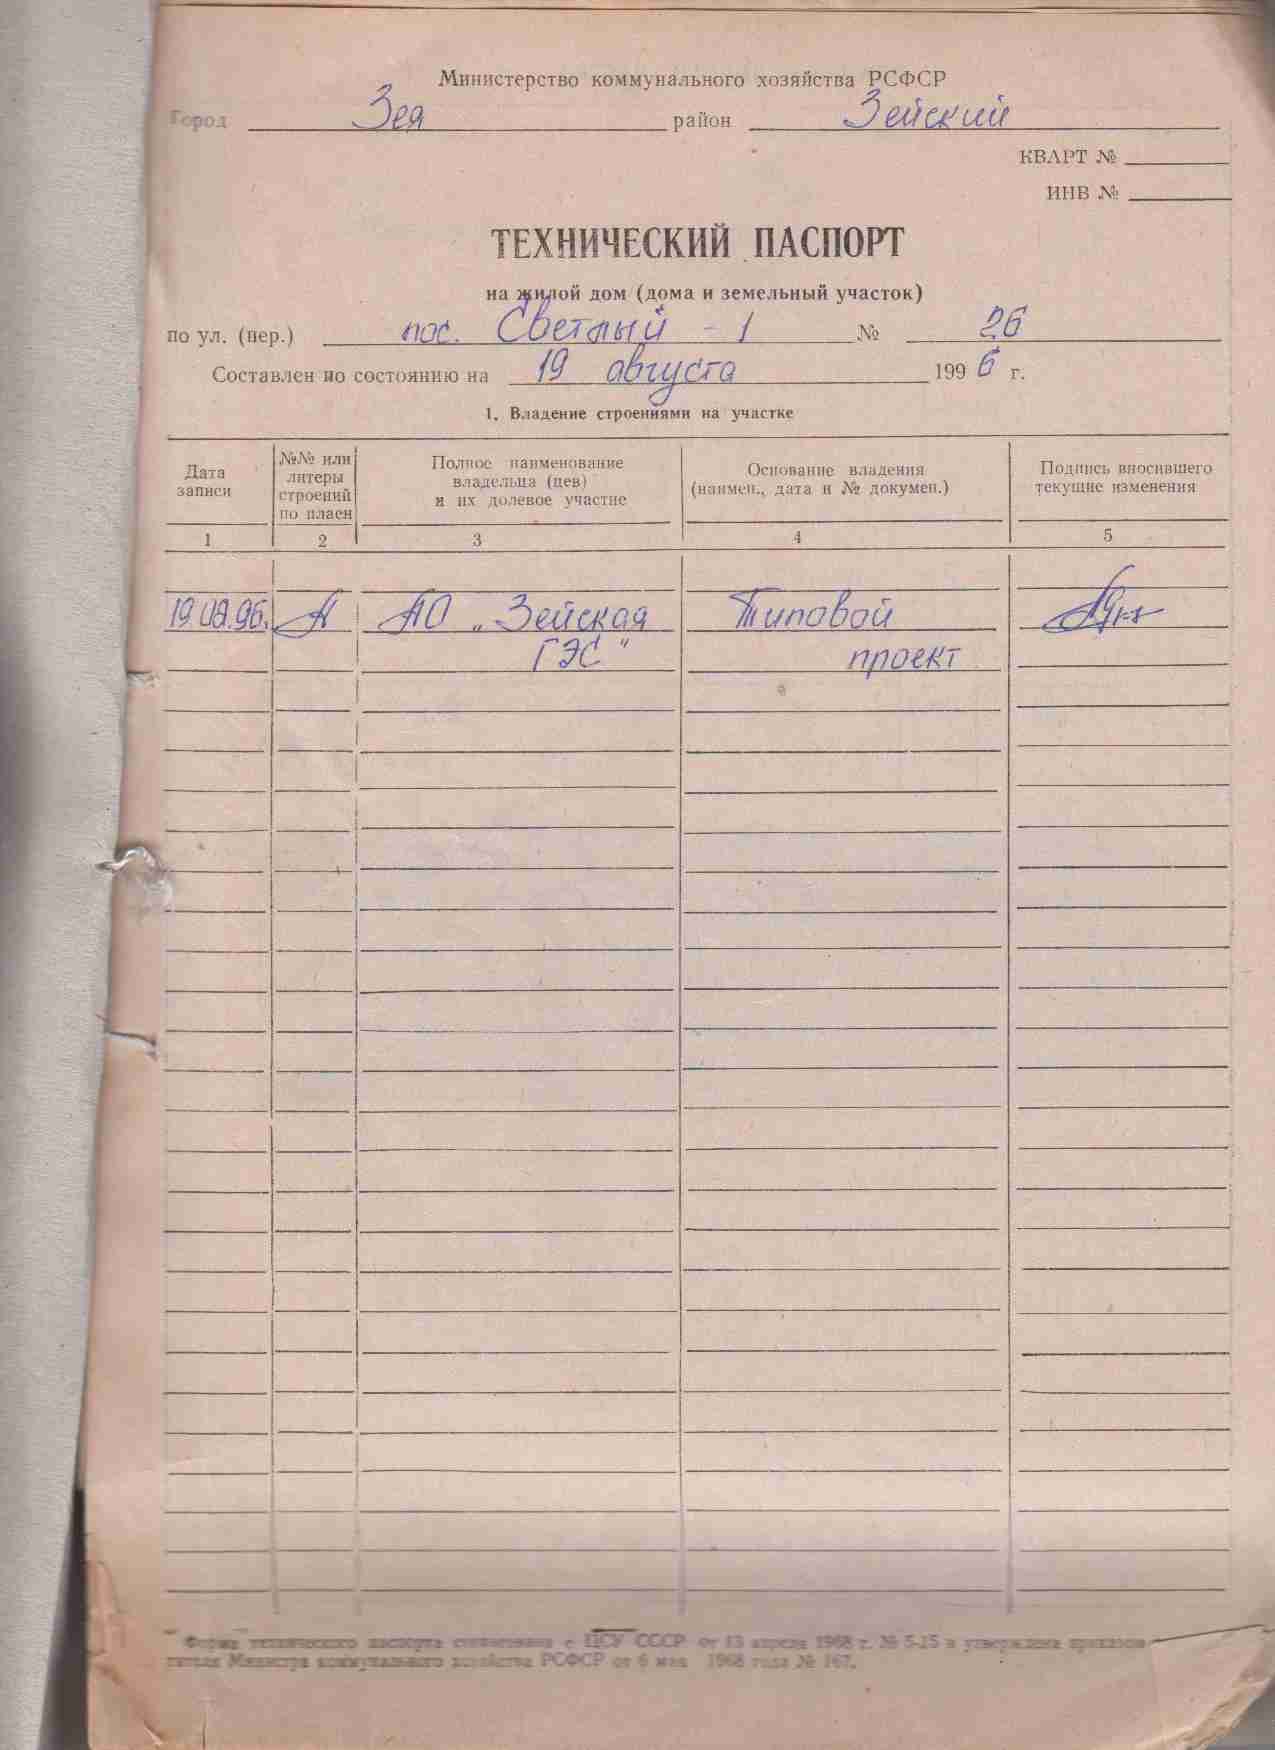 Министерство коммунального хозяйства РСФСР
Город Зея район Зейский
КВАРТ №
ИНВ №
ТЕХНИЧЕСКИЙ ПАСПОРТ
на жилой дом (дома и земельный участок)
по ул. (пер.) пос. Светлый - 1 № 26
Составлен по состоянию на 19 августа 1996 г.
1. Владение строениями на участке
Дата записи
№№ или литеры строений по плаен
Полное наименование владельца (цев) и их долевое участие
Основание владения (наимен., дата и № докумен.)
Подпись вносившего текущие изменения
1 2 3 4 5
19.08.96. А АО „Зейская Типовой
ГЭС" проект
Форма технического паспорта согласована с ЦСУ СССР от 13 апреля 1968 г. № 5-15 и утверждена приказом
Министра коммунального хозяйства РСФСР от 6 мая 1968 года № 167.